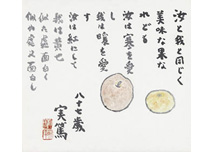 汝と我と同じく
美味な果な
れども
汝は寒を愛
我は暖を愛
す
汝は紅にして
我は黄也
似た処面白く
似ぬ処又面白し
八十七歳
実篤